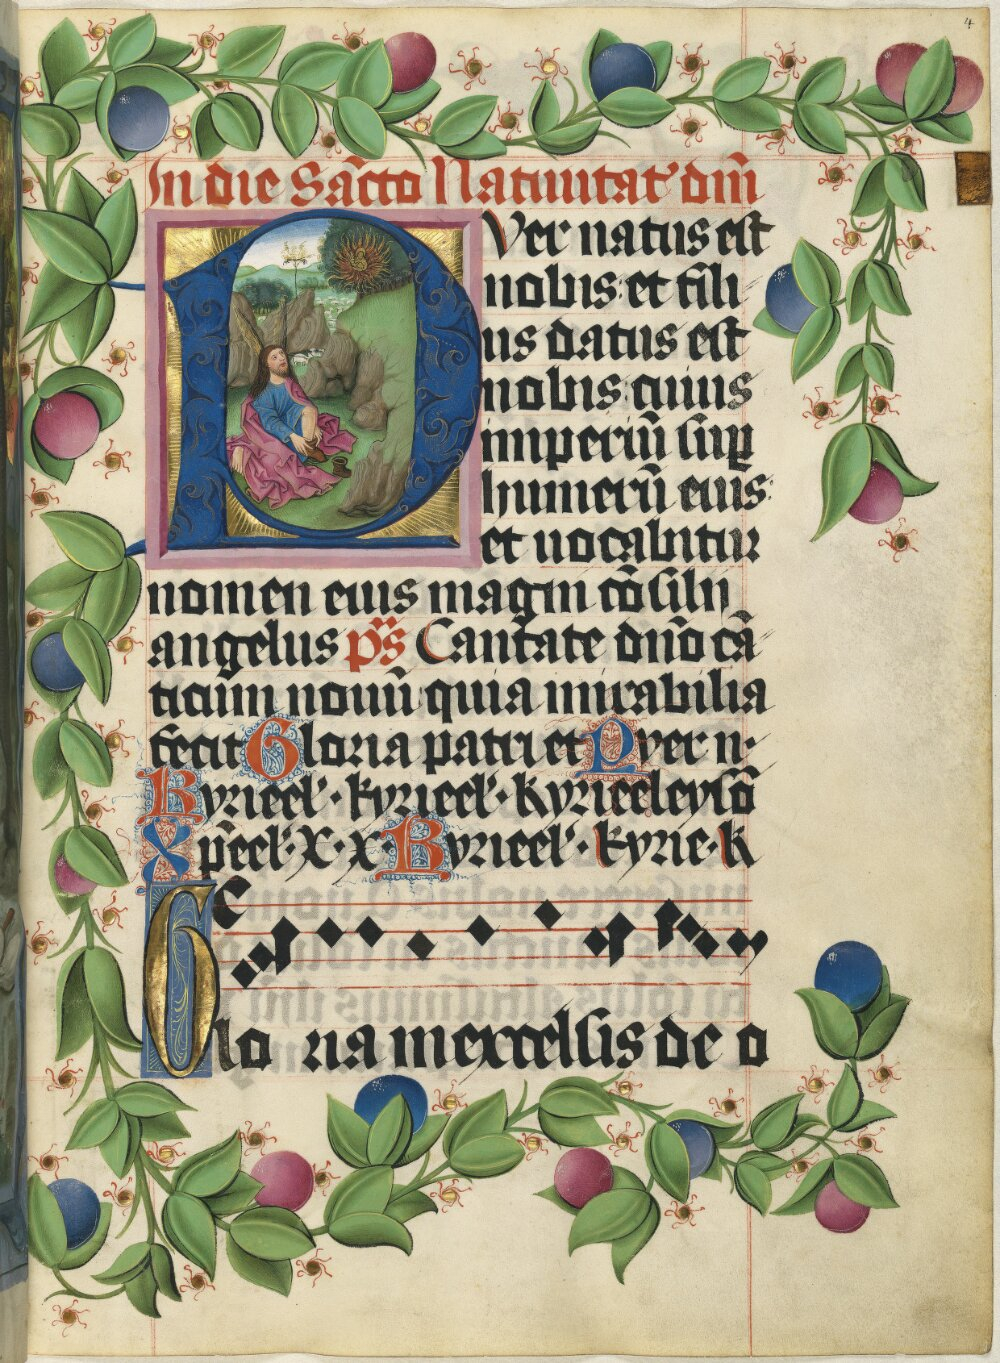 4
In die Sācto Natiuitat' dm̄
Puer natus est
nobis et fili
us datus est
nobis cuius
imperiū sup
humerū eius:
et uocabitur
nomen eius magni cōsilij
angelus ps̄ Cantate dn̄o cā
ticum nouū quia mirabilia
fecit Gloria patri et Puer n·
Kyrieel'· kyrieel'· Kyrieeleysō
Xp̄eel'· X· x· Kyrieel'· Kyrie· k
Glo ria in excelsis de o